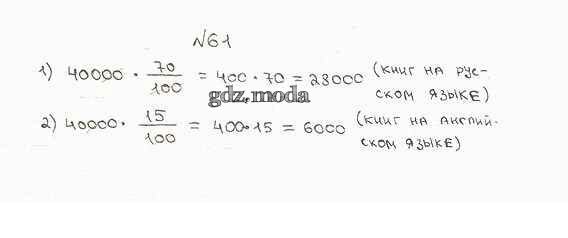 №61
1) 40000 · 70/100 = 400 · 70 = 28000 (книг на рус-
ском языке)
gdz.moda
2) 40000 · 15/100 = 400·15 = 6000 (книг на англий-
ском языке)